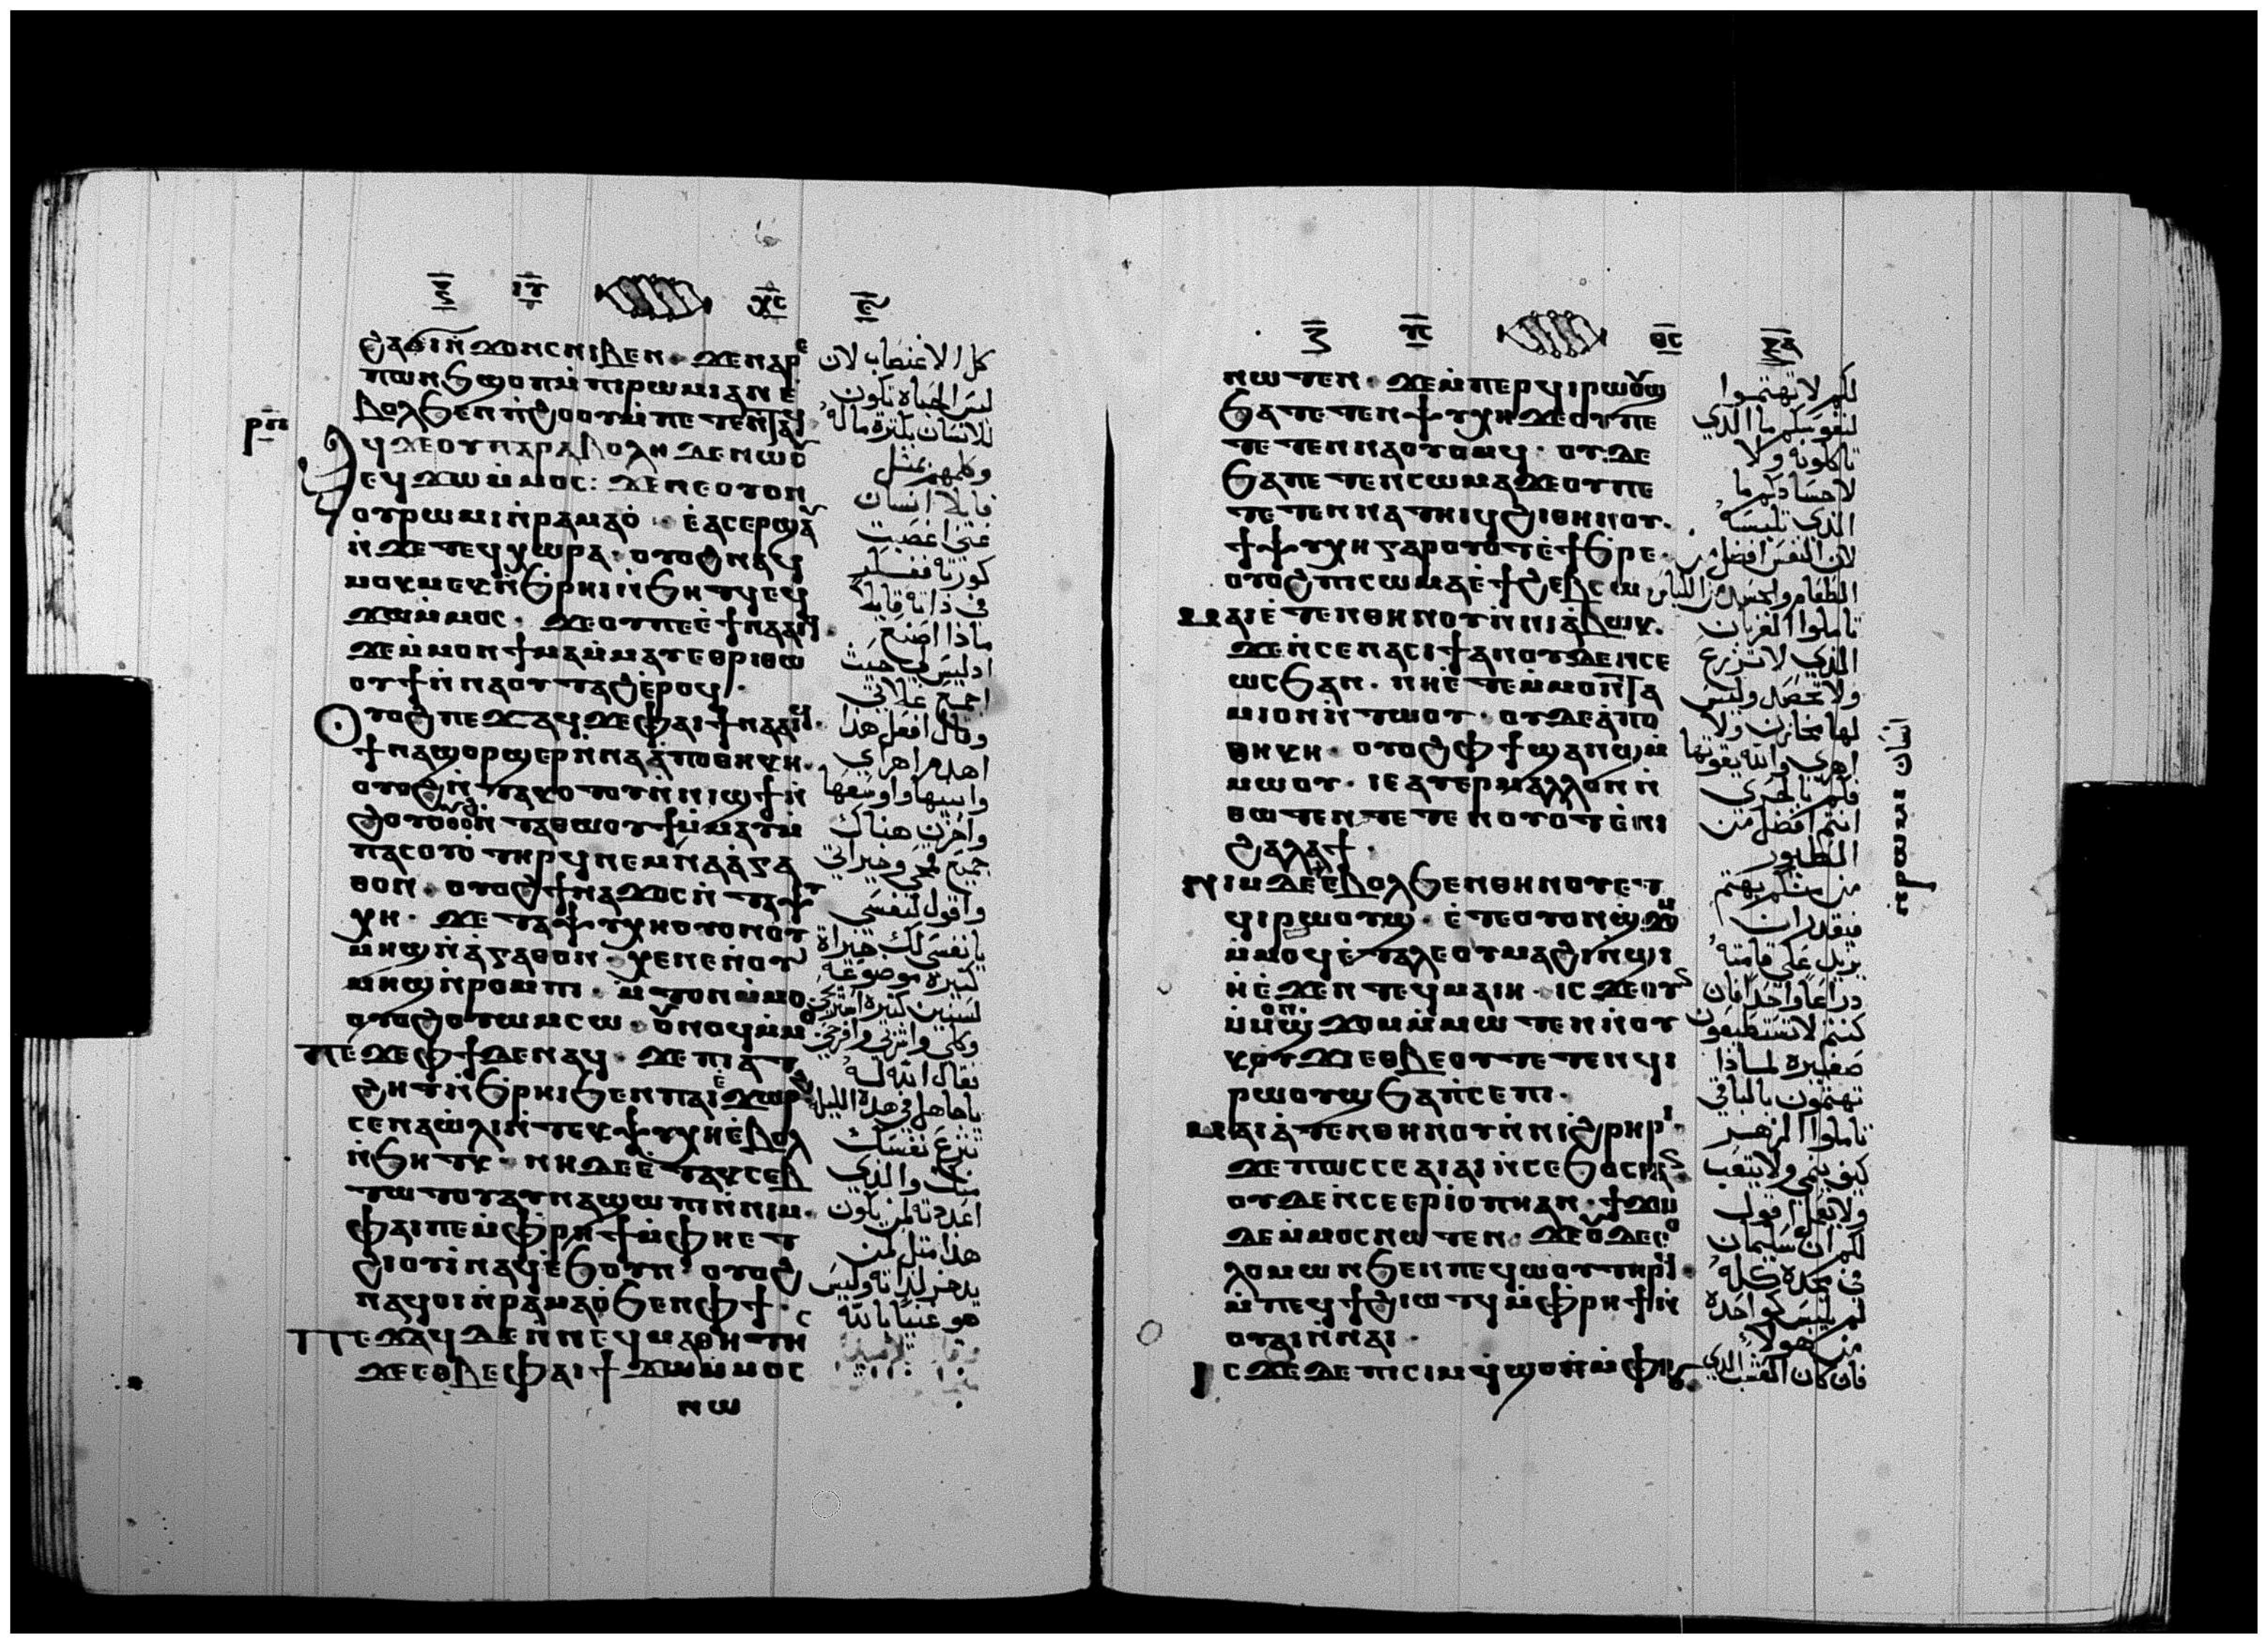 ⲭ̅ⲥ̅
ⲣ̅ⲡ̅
ϩⲁϭⲓⲛ̀ϫⲟⲛⲥⲛⲓⲃⲉⲛ· ϫⲉⲛⲁⲣⲉ
ⲡⲱⲛϧϣⲟⲡⲙ̀ⲡⲓⲣⲱⲙⲓⲁⲛⲉ̀
ⲃⲟⲗϧⲉⲛⲡ̀ϩⲟⲩⲟ̀ⲙ̀ⲡⲉⲧⲉⲛⲧⲁϥ
ϥϫⲉⲟⲩⲡⲁⲣⲁⲃⲟⲗⲏϫⲉⲛⲱⲟⲩ
ⲉϥϫⲱⲙ̀ⲙⲟⲥ: ϫⲉⲛⲉⲟⲩⲟⲛ
ⲟⲩⲣⲱⲙⲓⲛ̀ⲣⲁⲙⲁⲟ̀· ⲉ̀ⲁⲥⲉⲣϣⲁⲩ
ⲛ̀ϫⲉⲧⲉϥⲭⲱⲣⲁ· ⲟⲩⲟϩⲛⲁϥ
ⲙⲟⲕⲙⲉⲕⲛ̀ϧⲣⲏⲓⲛ̀ϧⲏⲧϥⲉϥ
ϫⲱⲙ̀ⲙⲟⲥ· ϫⲉⲟⲩⲡⲉⲉ̀ϯⲛⲁⲁⲓϥ
ϫⲉⲙ̀ⲙⲟⲛϯⲙⲁⲙ̀ⲙⲁⲩⲉⲑⲣⲓⲑⲱ
ⲟⲩϯⲛ̀ⲛⲁⲟⲩⲧⲁϩⲉ̀ⲣⲟϥ·
ⲟⲩⲟϩⲡⲉϫⲁϥϫⲉⲫⲁⲓϯⲛⲁⲁⲓϥ·
ϯⲛⲁϣⲟⲣϣⲉⲣⲛ̀ⲛⲁⲁ̀ⲡⲟⲑⲏⲕⲏ·
ⲟⲩⲟϩⲛ̀ⲧⲁⲕⲟⲧⲟⲩⲛ̀ⲛⲓϣϯⲛ̀
ϩⲟⲩⲟ̀ⲟⲩⲟϩⲛ̀ⲧⲁⲑⲱⲟⲩϯⲙ̀ⲙⲁⲩⲙ̀
ⲡⲁⲥⲟⲩⲟ̀ⲧⲏⲣϥⲛⲉⲙⲛⲁⲁ̀ⲅⲁ
ⲑⲟⲛ· ⲟⲩⲟϩϯⲛⲁϫⲟⲥⲛ̀ⲧⲁⲯⲩ
ⲭⲏ· ϫⲉⲧⲁⲯⲩⲭⲏⲟⲩⲟⲛⲟⲩ
ⲙⲏϣⲛ̀ⲁ̀ⲅⲁⲑⲟⲛ· ⲭⲉⲛⲉ̀ⲛⲟⲩ
ⲙⲏϣⲛ̀ⲣⲟⲙⲡⲓ· ⲙ̀ⲧⲟⲛⲙ̀ⲙⲟ·
ⲟⲩⲟϩⲟⲩⲱⲙⲥⲱ· ⲟⲩⲛⲟϥⲙ̀ⲙⲟ
ⲡⲉϫⲉⲫϯⲇⲉⲛⲁϥ· ϫⲉⲡⲓⲁⲧ
ϩⲏⲧⲛ̀ϧⲣⲏⲓϧⲉⲛⲡⲁⲓⲉ̀ϫⲱⲣϩ
ⲥⲉⲛⲁⲱ̀ⲗⲓⲛ̀ⲧⲉⲕⲯⲩⲭⲏⲉ̀ⲃⲟⲗ
ⲛ̀ϧⲏⲧⲕ· ⲛⲏⲇⲉⲉ̀ⲧⲁⲕⲥⲉⲃ
ⲧⲱⲧⲟⲩⲁⲩⲛⲁϣⲱⲡⲓⲛ̀ⲛⲓⲙ·
ⲫⲁⲓⲡⲉⲙ̀ⲫⲣⲏϯⲙ̀ⲫⲏⲉⲧ
ϩⲓⲟⲩⲓ̀ⲛⲁϥⲉ̀ϧⲟⲩⲛ· ⲟⲩⲟϩ
ⲛⲁϥⲟⲓⲛ̀ⲣⲁⲙⲁⲟ̀ϧⲉⲛⲫϯ·
ⲡⲉϫⲁϥⲇⲉⲛⲛⲉϥⲙⲁⲑⲏⲧⲏⲥ
ϫⲉⲉⲑⲃⲉⲫⲁⲓϯϫⲱⲙ̀ⲙⲟⲥ
ⲛⲱ
كل الاغتصاب لان
ليس الحياة تكون
للانسان بكثرة ماله
وكلمهم بمثل
قايلا انسان
غني اغصبت
كورته ففكر
في ذاته قايلا
ماذا اصنع
اذ ليس لي حيث
اجمع غلاتي
وقال افعل هذا
اهدم اهراي
وابنيها واوسعها
واخزن هناك
جميع قمحي وخيراتي
واقول لنفسي
يا نفسي لك خيراة
كثيرة موضوعة
لسنين كثيرة استريحي
وكلي واشربي وافرحي
فقال الله له
يا جاهل في هذه الليلة
تنزع نفسك
منك والذي
اعددته لمن يكون
هذا مثل من
يدخر لذاته وليس
هو غنيا بالله
ⲑ̅ⲥ̅ ⲝ̅ⲁ̅
ⲛⲱⲧⲉⲛ· ϫⲉⲙ̀ⲡⲉⲣϥⲓⲣⲱⲟⲩϣ
ϧⲁⲡⲉⲧⲉⲛⲯⲩⲭⲏϫⲉⲟⲩⲡⲉ
ⲧⲉⲧⲉⲛⲛⲁⲟⲩⲟⲙϥ· ⲟⲩⲇⲉ
ϧⲁⲡⲉⲧⲉⲛⲥⲱⲙⲁϫⲉⲟⲩⲡⲉ
ⲧⲉⲧⲉⲛⲛⲁⲧⲏⲓϥϩⲓⲑⲏⲛⲟⲩ·
ϯⲯⲩⲭⲏⲅⲁⲣⲟⲩⲟⲧⲉ̀ϯϧⲣⲉ·
ⲟⲩⲟϩⲡⲓⲥⲱⲙⲁⲉ̀ϯϩⲉⲃⲥⲱ
ⲙⲁⲓⲉ̀ⲧⲉⲛⲑⲏⲛⲟⲩⲛ̀ⲛⲓⲁ̀ⲃⲱⲕ·
ϫⲉⲛ̀ⲥⲉⲛⲁⲥⲓϯⲁⲛⲟⲩⲇⲉⲛ̀ⲥⲉ
ⲱⲥϧⲁⲛ· ⲛⲏⲉ̀ⲧⲉⲙ̀ⲙⲟⲛⲧⲁ
ⲙⲓⲟⲛⲛ̀ⲧⲱⲟⲩ· ⲟⲩⲇⲉⲁ̀ⲡⲟ
ⲑⲏⲕⲏ· ⲟⲩⲟϩⲫϯϣⲁⲛϣⲙ̀
ⲙⲱⲟⲩ· ⲓⲉⲁⲧⲉⲣⲙⲁⲗⲗⲟⲛⲛ̀
ⲑⲱⲧⲉⲛⲧⲉⲧⲉⲛⲟⲩⲟⲧⲉ̀ⲛⲓ
ϩⲁⲗⲁϯ·
ⲛⲓⲙⲇⲉⲉ̀ⲃⲟⲗϧⲉⲛⲑⲏⲛⲟⲩⲉⲧ
ϥⲓⲣⲱⲟⲩϣ· ⲉ̀ⲧⲉⲟⲩⲟⲛϣϫⲟⲙ
ⲙ̀ⲙⲟϥⲉ̀ⲧⲁⲗⲉⲟⲩⲙⲁϩⲓⲛ̀ϣⲓ
ⲏ̀ⲉ̀ϫⲉⲛⲧⲉϥⲙⲁⲓⲏ· ⲓⲥϫⲉⲟⲩⲇⲉ
ⲙ̀ⲙⲟⲛϣϫⲟⲙⲙ̀ⲙⲱⲧⲉⲛⲛ̀ⲟⲩ
ⲕⲟⲩϫⲓⲉⲑⲃⲉⲟⲩⲧⲉⲧⲉⲛϥⲓ
ⲣⲱⲟⲩϣϧⲁⲡ̀ⲥⲉⲡⲓ·
ⲙⲁⲓⲁ̀ⲧⲉⲛⲑⲏⲛⲟⲩⲛ̀ⲛⲓϩⲣⲏⲣⲓ·
ϫⲉⲡⲱⲥⲥⲉⲁⲓⲁⲓⲛ̀ⲥⲉϧⲟⲥⲓⲁⲛ
ⲟⲩⲇⲉⲛ̀ⲥⲉⲉⲣⲓⲟⲡⲏⲁⲛ· ϯϫⲱ
ⲇⲉⲙ̀ⲙⲟⲥⲛⲱⲧⲉⲛ· ϫⲉⲟⲩⲇⲉⲥⲟ
ⲗⲟⲙⲱⲛϧⲉⲛⲡⲉϥⲱⲟⲩⲧⲏⲣϥ·
ⲙ̀ⲡⲉϥϯϩⲓⲱⲧϥⲙ̀ⲫⲣⲏϯⲛ̀
ⲟⲩⲁⲓⲛ̀ⲛⲁⲓ·
ⲓⲥϫⲉⲇⲉⲡⲓⲥⲓⲙϥ̀ϣⲟⲡⲙ̀ⲫⲟⲟⲩ
لكم لا تهتموا
لنفوسكم ما الذي
تاكلونه ولا
لاجسادكم ما
الذي تلبسه
لان النفس افضل من
الطعام والجسد من اللباس
تاملوا الغربان
الذي لا تزرع
ولا تحصد وليس
لها مخازن ولا
اهري والله يقوتها
فكم بالحري
انتم افضل من
الطيور
من منكم يهتم
فيقدر ان
يزيد على قامته
دراعا واحدا فان
كنتم لا تستطيعون
صغيرة لماذا
تهتمون بالباقي
تاملوا الزهر
كيف ينمي ولا يتعب
ولا يعمل اقول
لكم ان سليمان
في مجده كله
لم يلبس كواحدة
من هولا
فان كان العشب الذي
انسان
ⲛ̀ⲣⲱⲙⲓ